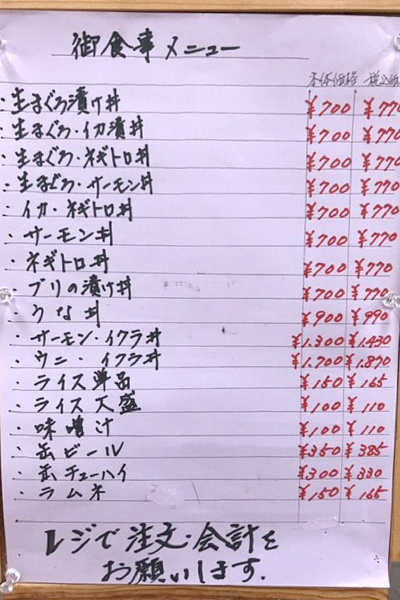 御食事メニュー
本体価格 税込
・生まぐろ漬け丼 ¥700 ¥770
・生まぐろ・イカ漬丼 ¥700 ¥770
・生まぐろ・ネギトロ丼 ¥700 ¥770
・生まぐろ・サーモン丼 ¥700 ¥770
・イカ・ネギトロ丼 ¥700 ¥770
・サーモン丼 ¥700 ¥770
・ネギトロ丼 ¥700 ¥770
・ブリの漬け丼 ¥700 ¥770
・うな丼 ¥900 ¥990
・サーモン・イクラ丼 ¥1.300 ¥1.430
・ウニ・イクラ丼 ¥1.700 ¥1.870
・ライス単品 ¥150 ¥165
・ライス大盛 ¥100 ¥110
・味噌汁 ¥100 ¥110
・缶ビール ¥350 ¥385
・缶チューハイ ¥300 ¥330
・ラムネ ¥150 ¥165
レジで注文・会計を
お願いします.